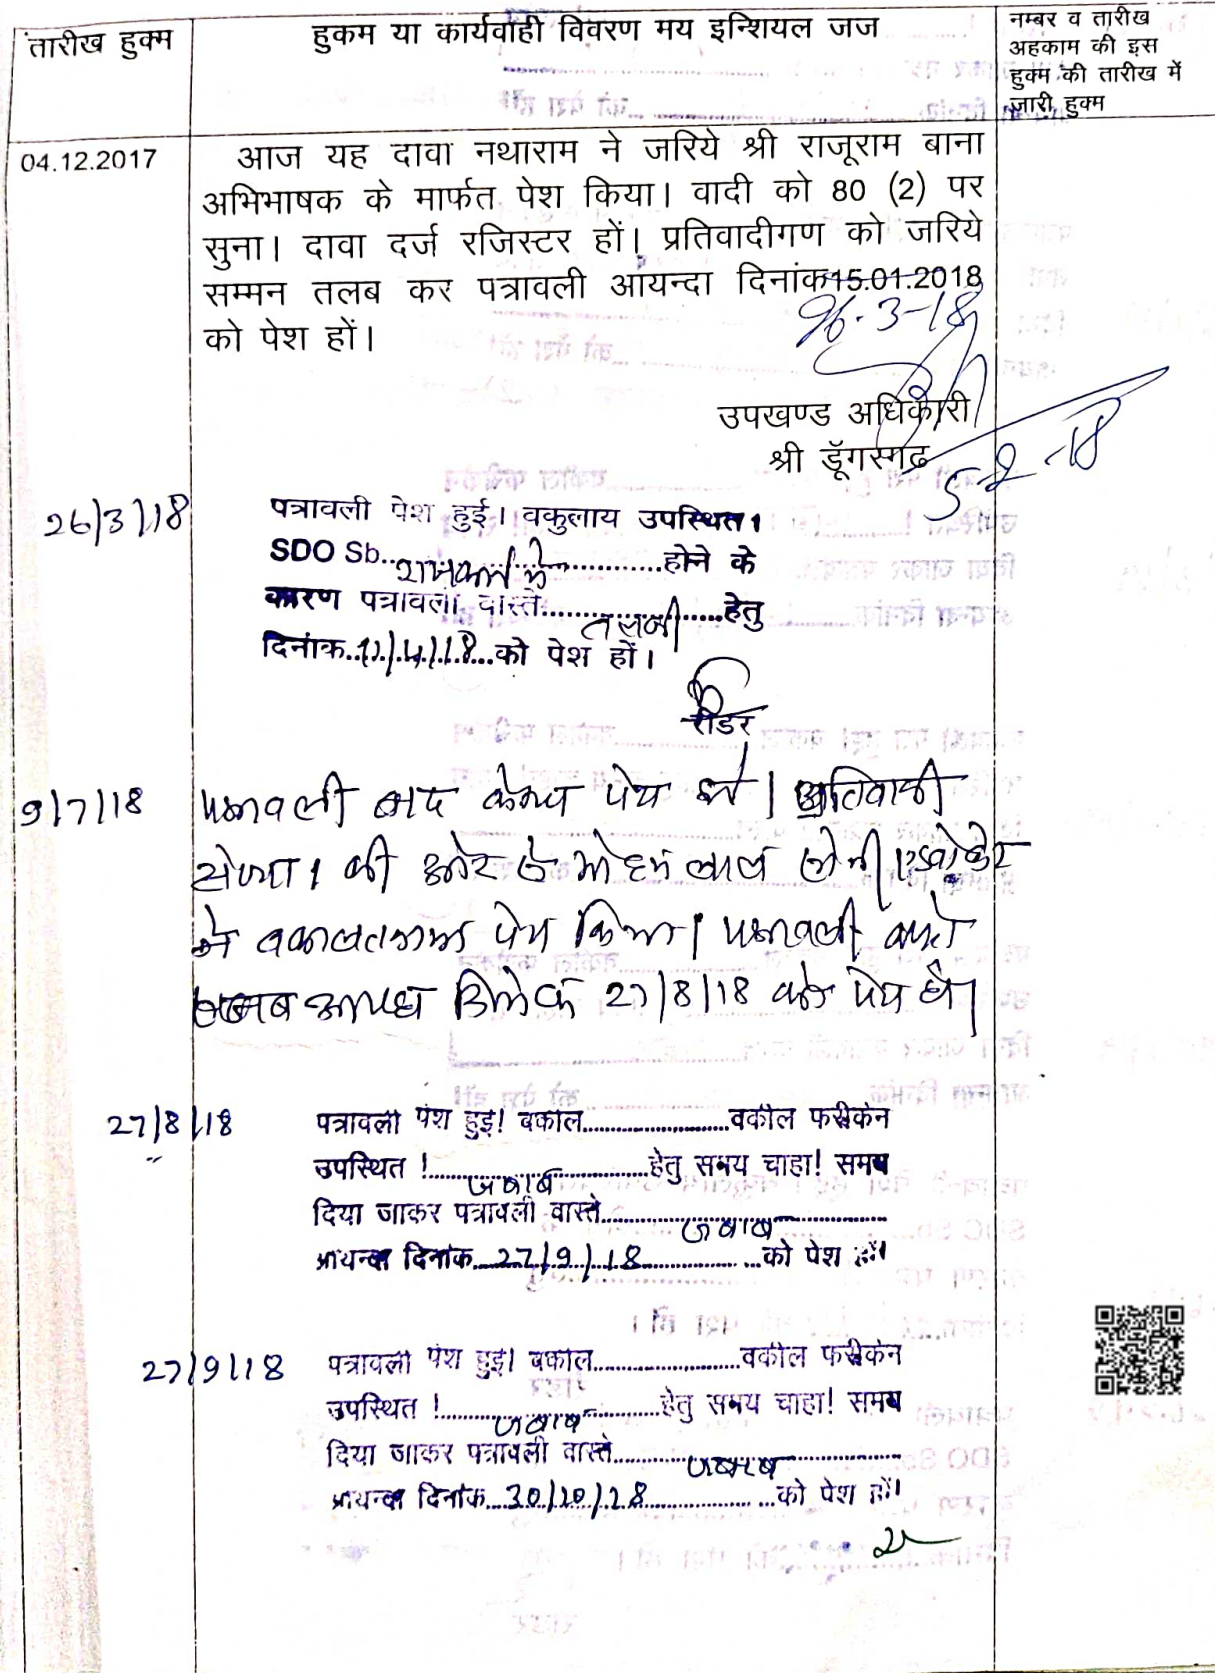 तारीख हुक्म
हुकम या कार्यवाही विवरण मय इन्शियल जज
नम्बर व तारीख
अहकाम की इस
हुक्म की तारीख में
जारी हुक्म
04.12.2017
आज यह दावा नथाराम ने जरिये श्री राजूराम बाना
अभिभाषक के मार्फत पेश किया। वादी को 80 (2) पर
सुना। दावा दर्ज रजिस्टर हों। प्रतिवादीगण को जरिये
सम्मन तलब कर पत्रावली आयन्दा दिनांक 15.01.2018
को पेश हों।
26-3-18
उपखण्ड अधिकारी
श्री डूँगरगढ़
5-2-18
26/3/18
पत्रावली पेश हुई। वकुलाय उपस्थित।
SDO Sb..राजकार्य में............होने के
कारण पत्रावली वास्ते......तलबी......हेतु
दिनांक..12/4/18...को पेश हों।
रीडर
9/7/18
पत्रावली बाद कैम्प पेश हुई। प्रतिवादी
संख्या 1 की ओर से मोहन लाल सोनी एडवोकेट
ने वकालतनामा पेश किया। पत्रावली वास्ते
जवाब आयन्दा दिनांक 27/8/18 को पेश हो।
27/8/18
पत्रावली पेश हुई! वकील..............वकील फरीकेन
उपस्थित !......जवाब......हेतु समय चाहा! समय
दिया जाकर पत्रावली वास्ते......जवाब......
आयन्दा दिनांक...27/9/18......को पेश हों।
27/9/18
पत्रावली पेश हुई। वकील..............वकील फरीकेन
उपस्थित !......जवाब......हेतु समय चाहा! समय
दिया जाकर पत्रावली वास्ते......जवाब......
आयन्दा दिनांक...30/10/18......को पेश हों।